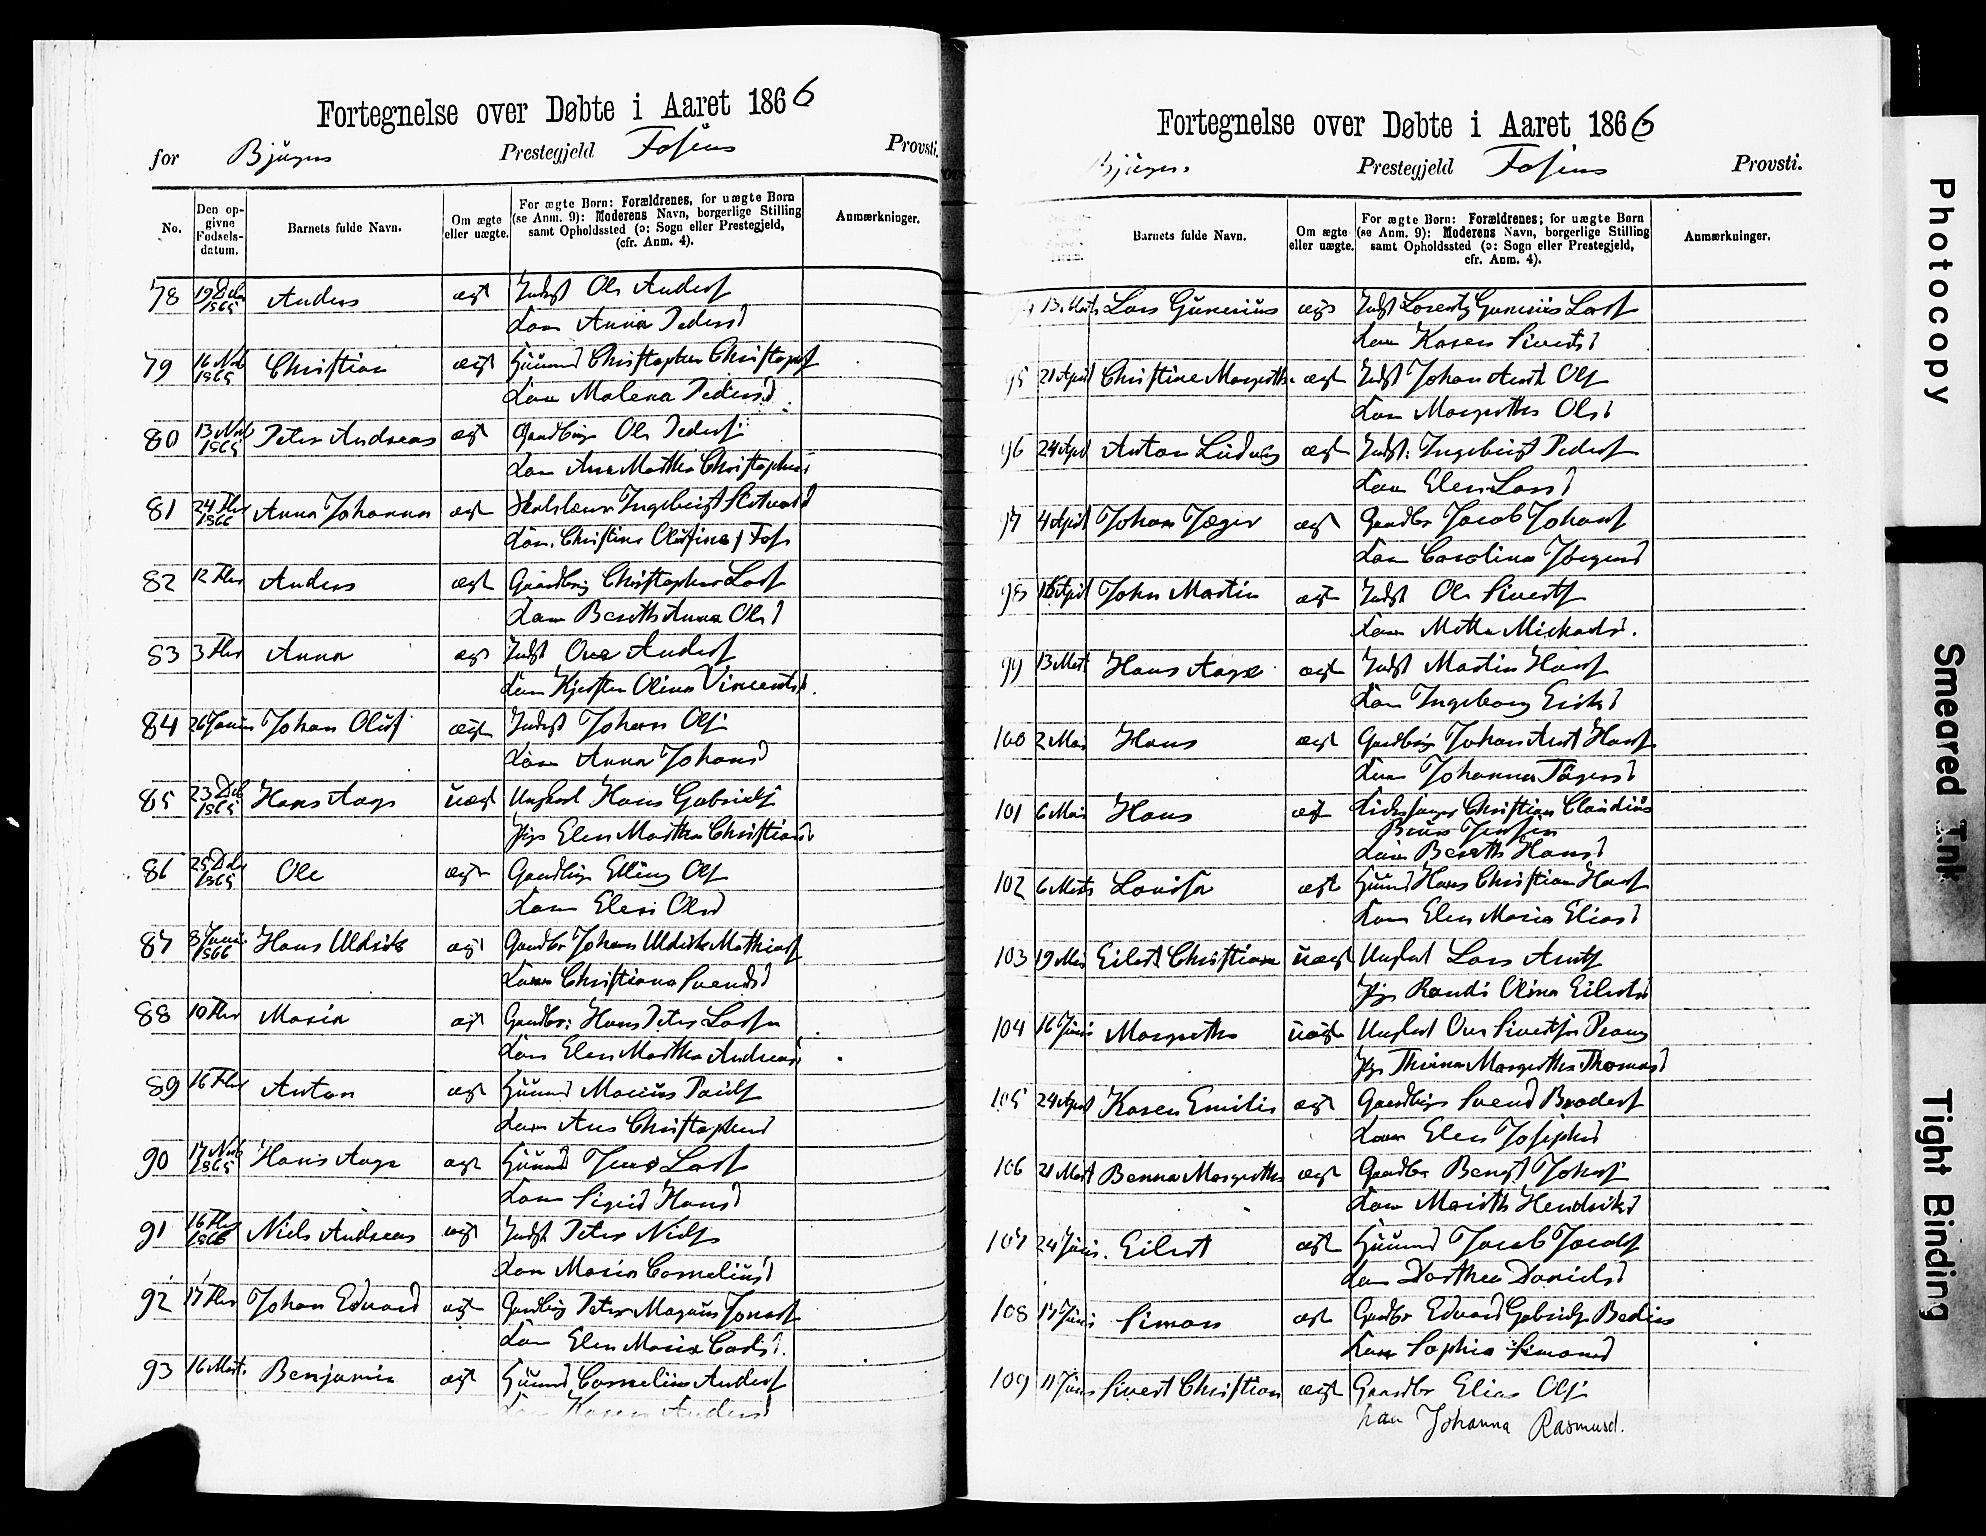 Fortegnelse over Døbte i Aaret 1866
for Bjugns Prestegjeld Fosens Provsti.
No.
Den op-
givne
Fødsels-
datum.
Barnets fulde Navn.
Om ægte
eller uægte.
For ægte Børn: Forældrenes, for uægte Børn
(se Anm. 9): Moderens Navn, borgerlige Stilling
samt Opholdssted (ɔ: Sogn eller Prestegjeld,
(cfr. Anm. 4).
Anmærkninger.
78 19 Dcbr 1865 Anders ægt Indst Ole Anders
Kone Anna Peders
79 16 Nvb 1865 Christian ægt Huusmd Christopher Christophs
Kone Malena Peders
80 13 Nvb 1865 Peter Andreas ægt Gaardbr Ole Peders
Kone Ane Martha Christophers
81 24 Fbr 1866 Anna Johanna ægt Skolelærer Ingebrigt
Kone Christine Olufine Fos
82 12 Fbr Anders ægt Gaardbrg Christopher Lars
Kone Bereth Anna Ols
83 3 Fbr Anna ægt Indst Ove Anders
Kone Kjersten Olina Vincents
84 26 Janu Johan Oluf ægt Inderst Johan Ols
Kone Anna Johans
85 23 Dcb 1865 Hans Aage uægt Ungkarl Hans Gabriels
Pige Elen Martha Christians
86 25 Dcb 1865 Ole ægte Gaardbrg Elling Ols
Kone Elen Ols
87 3 Janu 1866 Hans Uldrik ægt Gaardbr Johan Uldrik Mathias
Kone Christiana Svends
88 10 Fbr Maria ægt Gaardbr: Hans Peter Larsen
Kone Elen Martha Andreas
89 16 Fbr Anton ægt Huusmd Marius Pauls
Kone Ane Christophers
90 17 Nvb 1865 Hans Aage ægt Huusmd Jens Lars
Kone Sigrid Hans
91 16 Fbr 1866 Niels Andreas ægt Indst Peter Niels
Kone Maria Cornelius
92 17 Fbr Johan Edvard ægt Gaardbrg Peter Magnus Jonas
Kone Elen Maria Carls
93 16 Mart. Benjamin ægt Huusmd Cornelius Anders
Kone Karen Anders
Fortegnelse over Døbte i Aaret 1866
Bjugns. Prestegjeld Fosens Provsti.
Barnets fulde Navn.
Om ægte
eller uægte.
For ægte Børn: Forældrenes; for uægte Børn
(se Anm. 9): Moderens Navn, borgerlige Stilling
samt Opholdssted (ɔ: Sogn eller Prestegjeld,
cfr. Anm. 4).
Anmærkninger.
94 13. Marts Lars Gunerius ægte Indst Lorentz Gunerius Lars
Kone Karen Siverts
95 21 April Christine Margrethe ægt Indst Johan Arnt Ols
Kone Margrethe Ols
96 24 April Anton Ludvig ægt Indst: Ingebrigt Peders
Kone Elen Lars
97 4 April Johan Jæger ægt Gaardbr Jacob Johans
Kone Carolina Jørgens
98 April John Martin ægt Indst Ole Siverts
Kone Metta Michaels.
99 13 Mart Hans Aage ægt Indst Martin Hans
Kone Ingeborg Eriks
100 2 Mai Hans ægt Gaardbrg Johan Arnt Hans
Kone Johanna
101 6 Mai Hans ægt Kirkesanger Christian Claudius
Jensen
Kone Bereth Hans
102 6 Marts Lovisa ægt Huusmd Hans Christian Hans
Kone Elen Maria Elias
103 19 Mai Eilert Christian uægt Ungkarl Lars Arnts
Pige Randi Olina Eilerts
104 16 Juni Margrethe uægt Ungkarl Ove Siverts
Pige Margrethe Thomas
105 24 April Karen Emilie ægt Gaardbrg Svend Broders
Kone Elen Josephs
106 21 Mart Benna Margrethe ægt Gaardbr Bengt Johns
Kone Marith Hendriks
107 24 Juni. Eilert ægt Huusmd Jacob Jacobs
Kone Dorthea Daniels
108 17 Juni Simon ægt Gaardbr Edvard Gabriels
Kone Sophia Simons
109 11 Juni Sivert Christian ægt Gaardbr Elias Ols
Kone Johanna Rasmusd.
Photocopy
Smeared Ink
Tight Binding